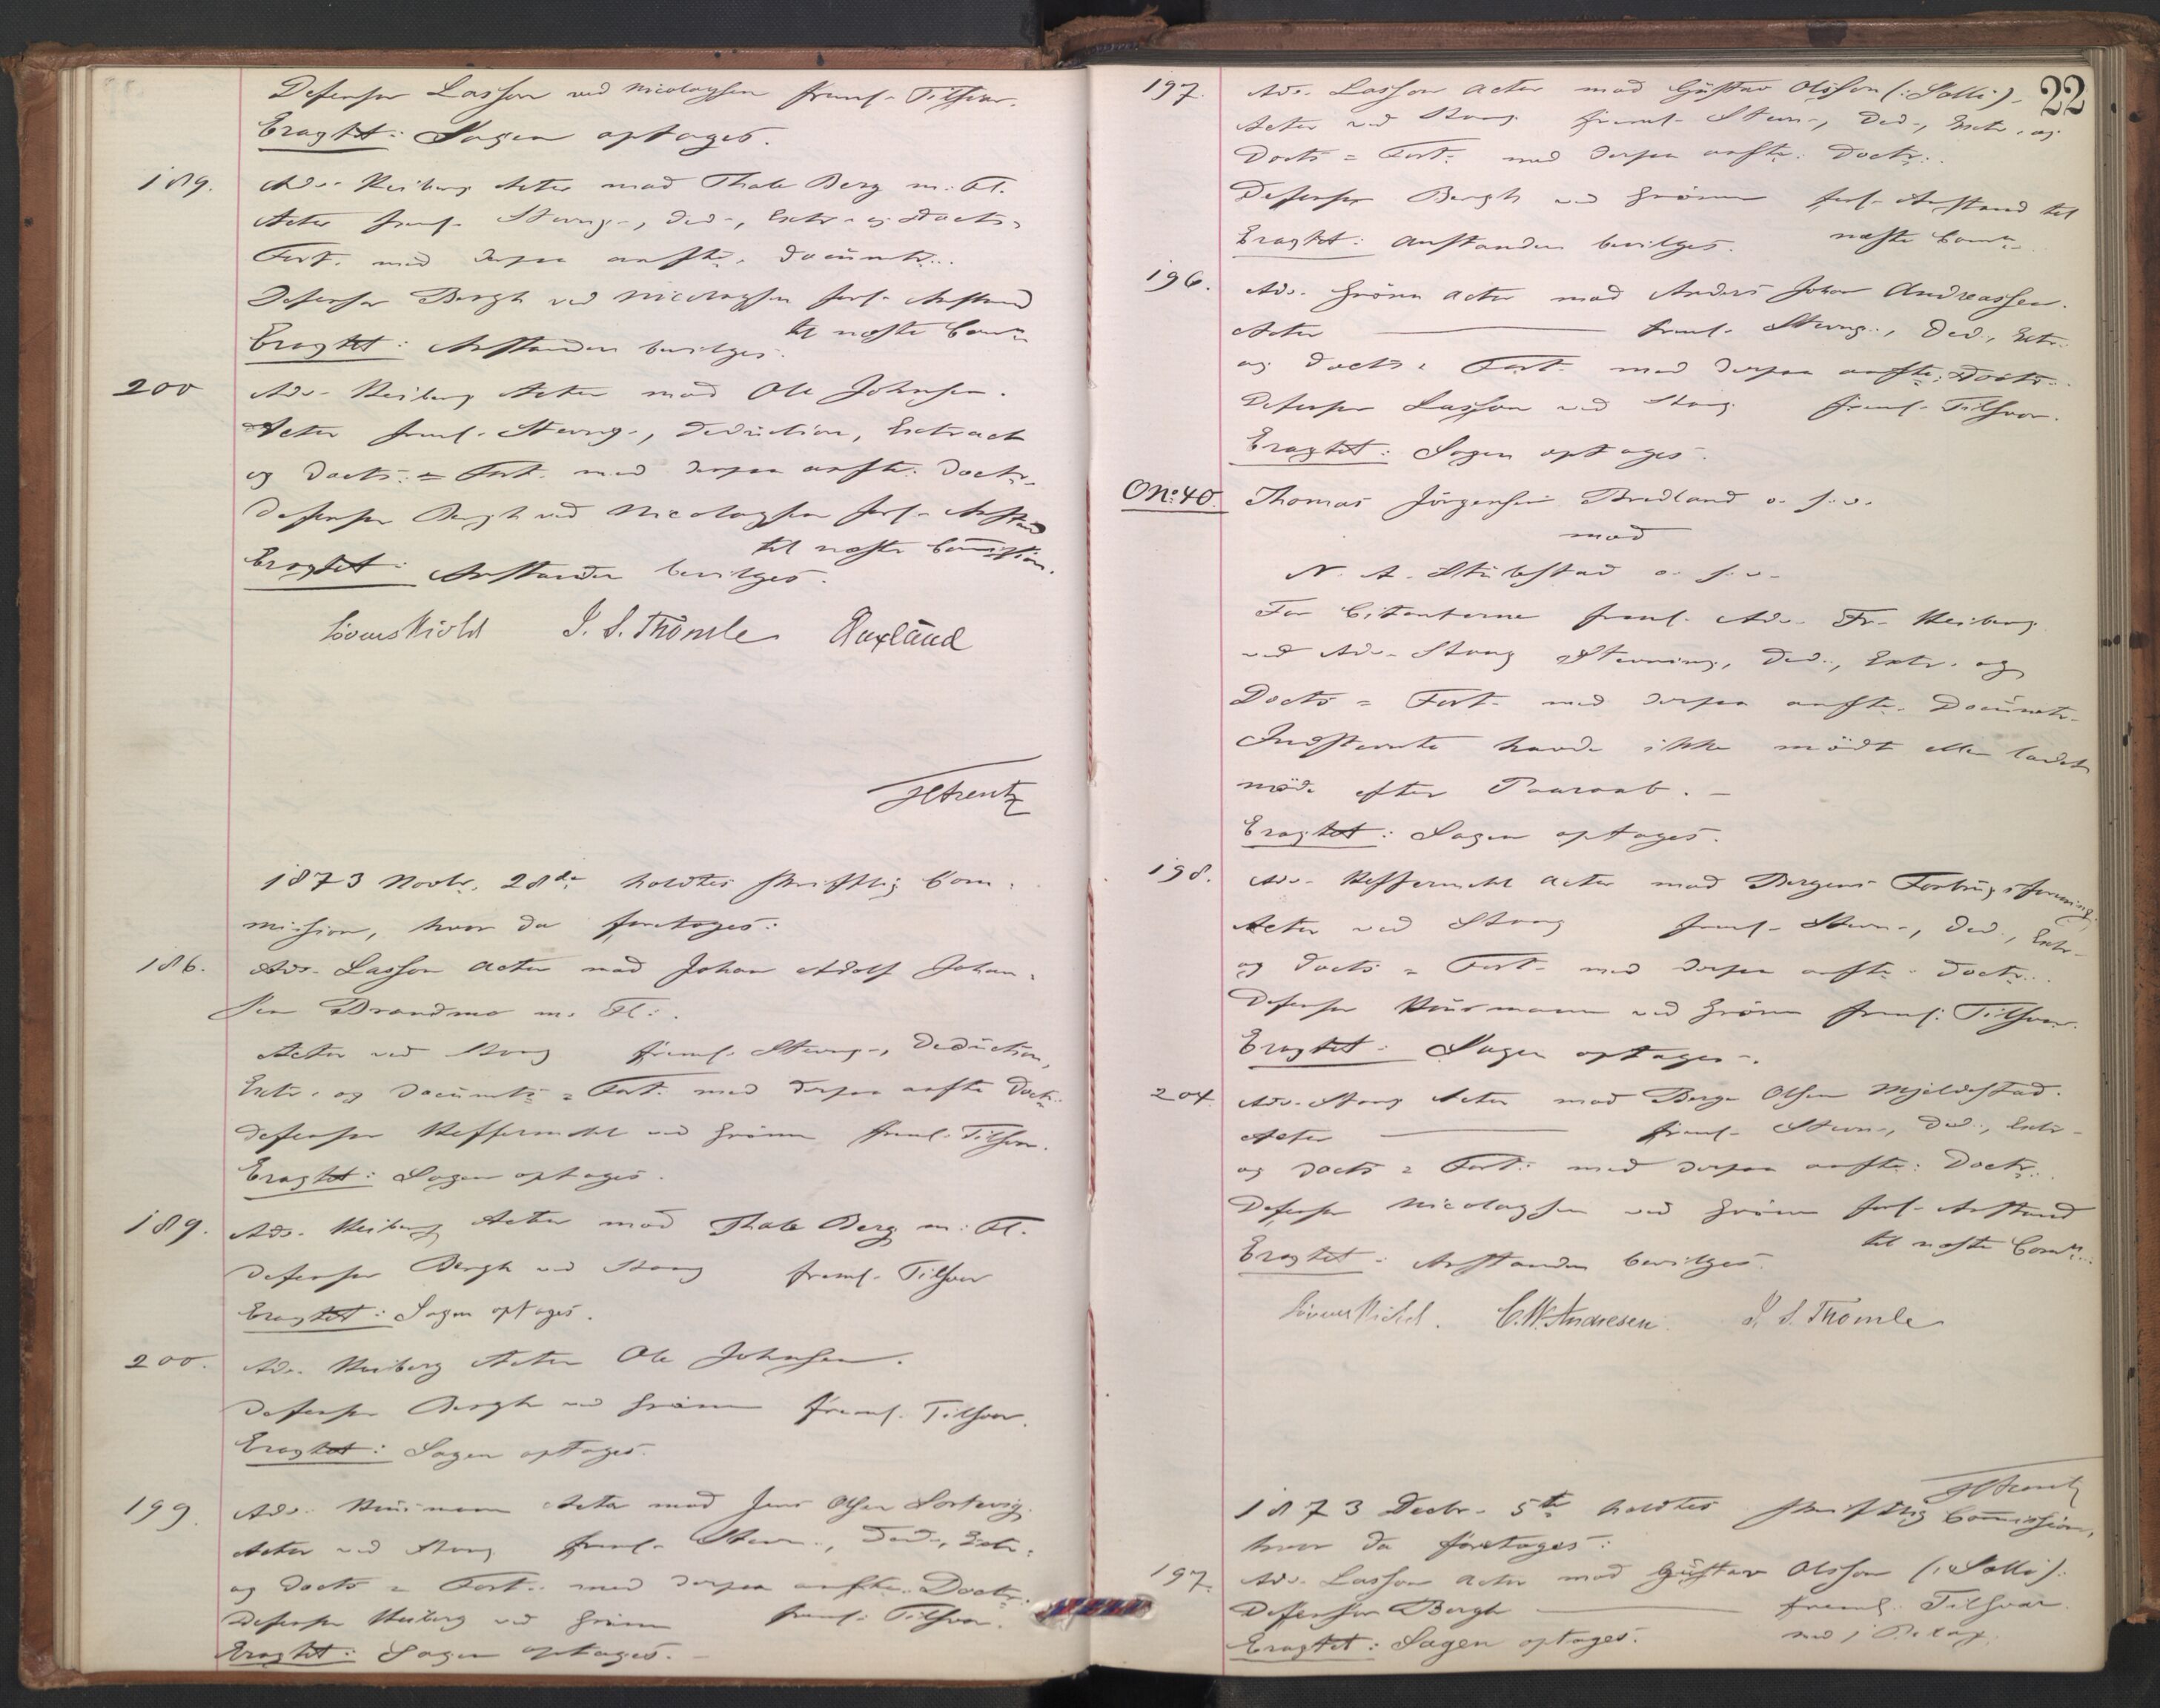 Defensor Lasson ved Nicolaysen freml. Tilsvar.
Eragtet: Sagen optages.
189. Adv. Heiberg Actor mod Thale Berg m. Fl.
Actor freml. Stevng-, Ded-, Extr- og Docts=
Fort. med derpaa anførte Documtr..
Defensor Bergh ved Nicolaysen forl. Anstand
til næste Comn
Eragtet: Anstanden bevilges.
200 Adv. Heiberg Actor mod Ole Johnsen.
Actor freml. Stevng-, Deduction, Extract
og Docts.= Fort. med derpaa anførte Doctr.
Defensor Bergh ved Nicolaysen forl. Anstand
til næste Com̄ission.
Eragtet: Anstanden bevilges.
Løvenskiold J. S. Thomle Auxland
H Arentz
1873 Novbr. 28de holdtes skriftlig Com-
mission, hvor da foretoges:
186. Adv. Lasson Actor mod Johan Adolf Johan-
sen Brandmo m. Fl:.
Actor ved Stang freml. Stevng-, Deduction,
Extr. og Documts = Fort. med derpaa anførte Doctr.
Defensor Heffermehl ved Grönn freml. Tilsvar.
Eragtet: Sagen optages.
189. Adv. Heiberg Actor mod Thale Berg m: Fl.
Defensor Bergh ved Stang freml. Tilsvar
Eragtet: Sagen optages.
200. Adv. Heiberg Actor Ole Johnsen.
Defensor Bergh ved Grönn freml. Tilsvar.
Eragtet: Sagen optages.
199. Adv. Huusmann Actor mod Jens Olsen
Actor ved Stang freml. Stevn-, Ded-, Extr.
og Docts = Fort. med derpaa anførte Doctr.
Defensor Heiberg ved Grönn freml. Tilsvar.
Eragtet: Sagen optages.
22
197. Adv. Lasson Actor mod Gustav Olsson (: Solli).
Actor ved Stang freml. Stevn-, Ded-, Extr. og
Docts = Fort. med derpaa anførte Doctr..
Defensor Bergh ved Grönn forl. Anstand til
næste Comn
Eragtet: Anstanden bevilges.
196. Adv. Grönn Actor mod Anders Johan Andreassen.
Actor freml. Stevng., Ded., Extr.
og Docts = Fort. med derpaa anførte Doctr.
Defensor Lasson ved Stang freml. Tilsvar.
Eragtet: Sagen optages.
O No: 40. Thomas Jörgensen Bredland o. s. v.
mod
N. A. Stubstad o. s. v.
For Citanterne freml. Adv. Fr. Heiberg
ved Adv. Stang Stevning, Ded., Extr. og
Docts = Fort. med derpaa anførte Documtr.
Indstevnte havde ikke mödt eller ladet
möde efter Paaraab. –
Eragtet: Sagen optages.
198. Adv. Heffermehl Actor mod Bergens
Actor ved Stang freml. Stevn-, Ded., Extr.
og Docts = Fort. med derpaa anførte Doctr..
Defensor Huusmann ved Grönn freml. Tilsvar.
Eragtet: Sagen optages.
204. Adv. Stang Actor mod Børge Olsen Mjeldestad.
Actor freml. Stevn-, Ded., Extr.
og Docts = Fort. med derpaa anførte Doctr.
Defensor Nicolaysen ved Grönn forl. Anstand
til næste Comn..
Eragtet: Anstanden bevilges.
Løvenskiold. C. W. Andresen J. S. Thomle
H Arentz
1873 Decbr. 5te holdtes skriftlig Com̄ission,
hvor da foretoges:
197. Adv. Lasson Actor mod Gustav Olsson (: Solli).
Defensor Bergh freml. Tilsvar
Eragtet: Sagen optages.